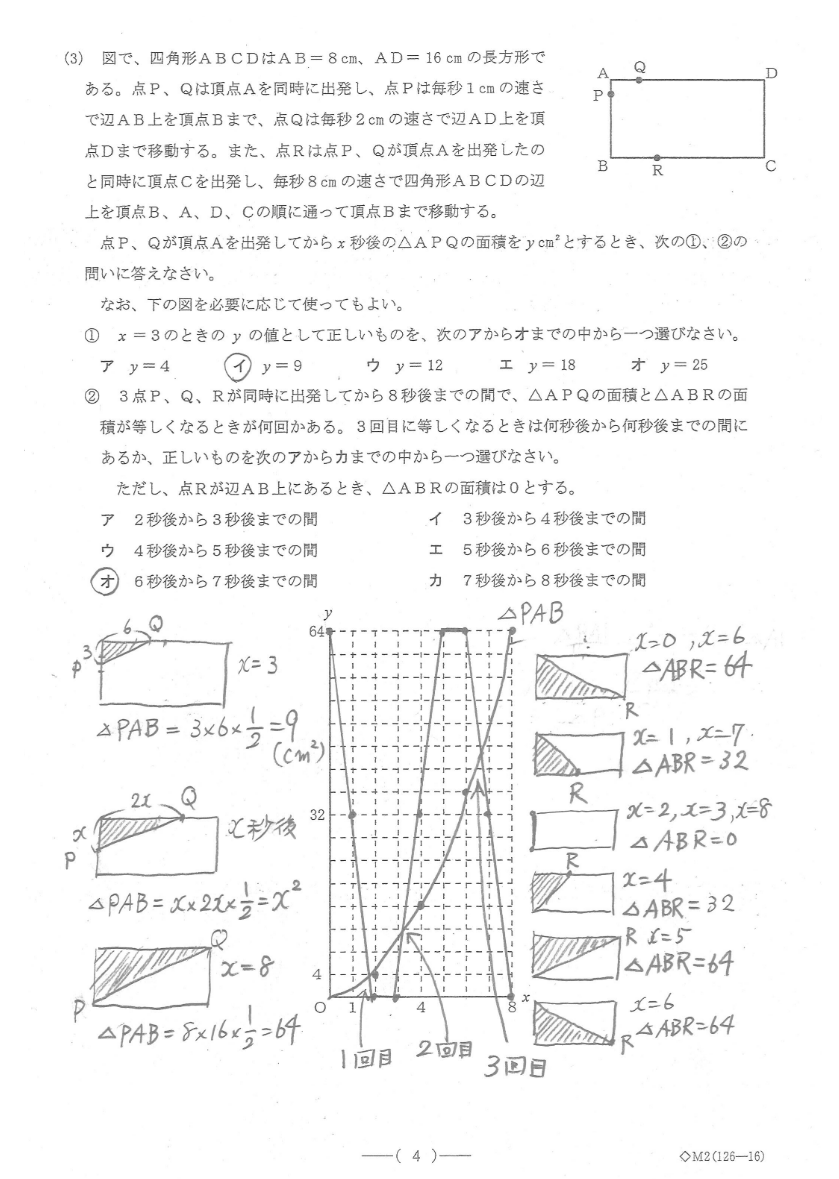 (3) 図で、四角形ＡＢＣＤはＡＢ＝８cm、ＡＤ＝16 cm の長方形で
ある。点Ｐ、Ｑは頂点Ａを同時に出発し、点Ｐは毎秒１cm の速さ
で辺ＡＢ上を頂点Ｂまで、点Ｑは毎秒２cm の速さで辺ＡＤ上を頂
点Ｄまで移動する。また、点Ｒは点Ｐ、Ｑが頂点Ａを出発したの
と同時に頂点Ｃを出発し、毎秒８cm の速さで四角形ＡＢＣＤの辺
上を頂点Ｂ、Ａ、Ｄ、Ｃの順に通って頂点Ｂまで移動する。
A Q D
P
B R C
点Ｐ、Ｑが頂点Ａを出発してから x 秒後の△ＡＰＱの面積を y cm²とするとき、次の①、②の
問いに答えなさい。
なお、下の図を必要に応じて使ってもよい。
① x ＝３のときの y の値として正しいものを、次のアからオまでの中から一つ選びなさい。
ア y＝４ イ y＝９ ウ y＝12 エ y＝18 オ y＝25
② ３点Ｐ、Ｑ、Ｒが同時に出発してから８秒後までの間で、△ＡＰＱの面積と△ＡＢＲの面
積が等しくなるときが何回かある。３回目に等しくなるときは何秒後から何秒後までの間に
あるか、正しいものを次のアからカまでの中から一つ選びなさい。
ただし、点Ｒが辺ＡＢ上にあるとき、△ＡＢＲの面積は０とする。
ア ２秒後から３秒後までの間 イ ３秒後から４秒後までの間
ウ ４秒後から５秒後までの間 エ ５秒後から６秒後までの間
オ ６秒後から７秒後までの間 カ ７秒後から８秒後までの間
6 Q
P 3
x=3
△PAB = 3×6×1/2=9
(cm²)
2x Q
x P
x秒後
△PAB=x×2x×1/2=x²
Q
P
x=8
△PAB=8×16×1/2=64
y
△PAB
64
32
4
O 1 4 8 x
1回目 2回目 3回目
x=0 , x=6
△ABR=64
R
x=1 , x=7
△ABR=32
R
x=2, x=3, x=8
△ABR=0
R
x=4
△ABR=32
R x=5
△ABR=64
x=6
R △ABR=64
—( 4 )—
◇M2(126—16)